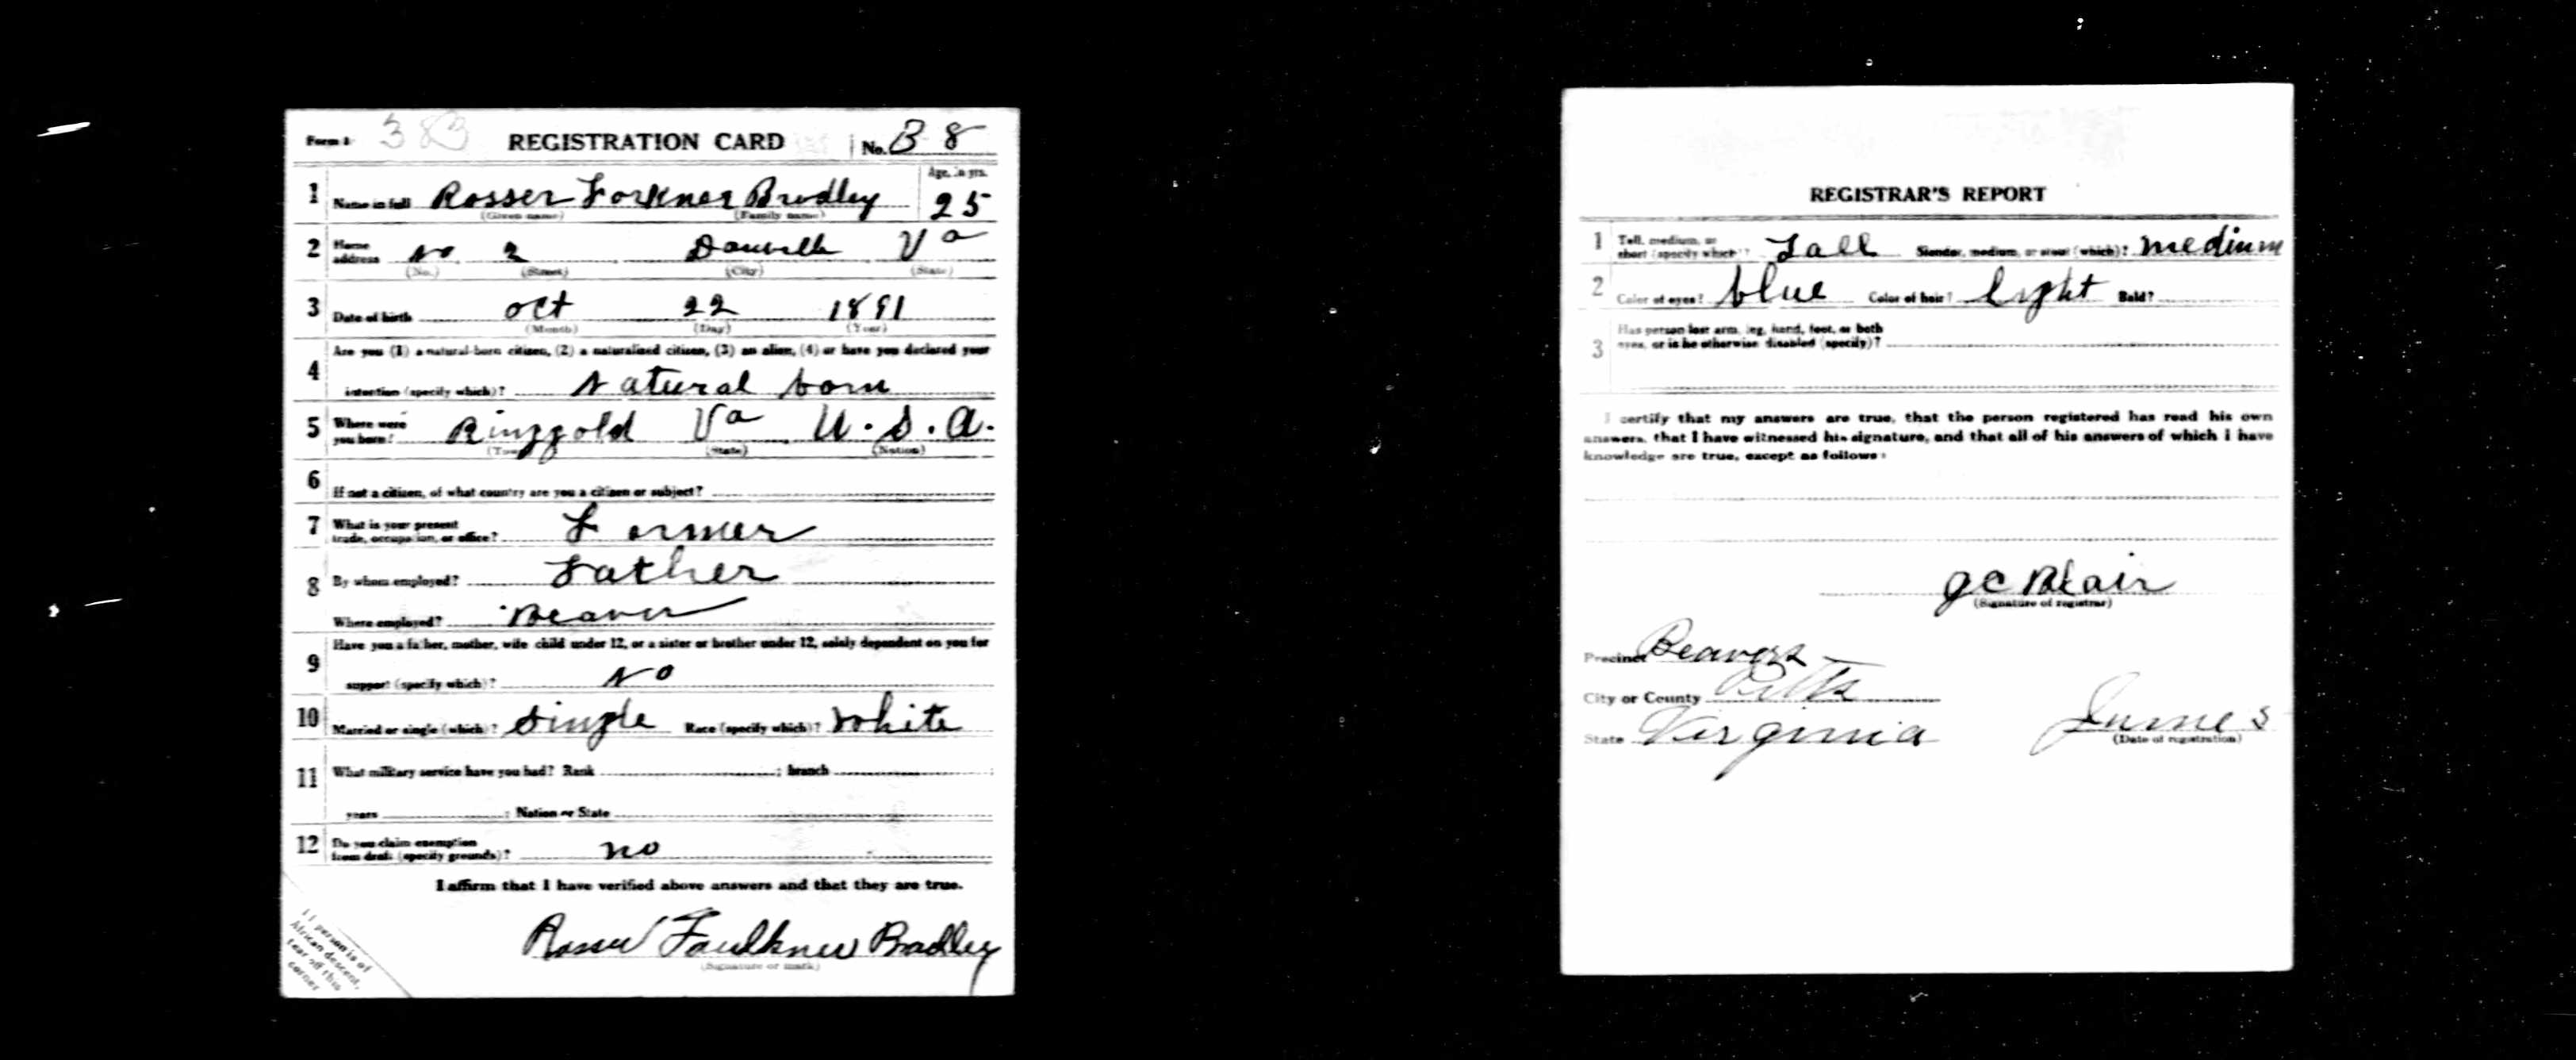 Form 1 383 REGISTRATION CARD No. B 8
Age, in yrs.
1 Name in full Rosser Forkner Bradley 25
(Given name) (Family name)
2 Home address No 2 Danville Va
(No.) (Street) (City) (State)
3 Date of birth Oct 22 1891
(Month) (Day) (Year)
Are you (1) a natural-born citizen, (2) a naturalized citizen, (3) an alien, (4) or have you declared your
4 intention (specify which)? Natural born
5 Where were you born? Ringgold Va U.S.A.
(Town) (State) (Nation)
6 If not a citizen, of what country are you a citizen or subject?
7 What is your present trade, occupation, or office? Farmer
8 By whom employed? Father
Where employed? Beaver
Have you a father, mother, wife child under 12, or a sister or brother under 12, solely dependent on you for
9 support (specify which)? No
10 Married or single (which)? Single Race (specify which)? White
11 What military service have you had? Rank ; branch ;
years ; Nation or State
12 Do you claim exemption from draft (specify grounds)? no
I affirm that I have verified above answers and that they are true.
Rosser Faulkner Bradley
(Signature or mark)
If person is of
African descent,
tear off this
corner
REGISTRAR'S REPORT
1 Tall, medium, or short (specify which)? Tall Slender, medium, or stout (which)? medium
2 Color of eyes? blue Color of hair? light Bald?
Has person lost arm, leg, hand, foot, or both
3 eyes, or is he otherwise disabled (specify)?
I certify that my answers are true, that the person registered has read his own
answers, that I have witnessed his signature, and that all of his answers of which I have
knowledge are true, except as follows:
J C Blair
(Signature of registrar)
Precinct Beavers
City or County Pitts
State Virginia June 5
(Date of registration)